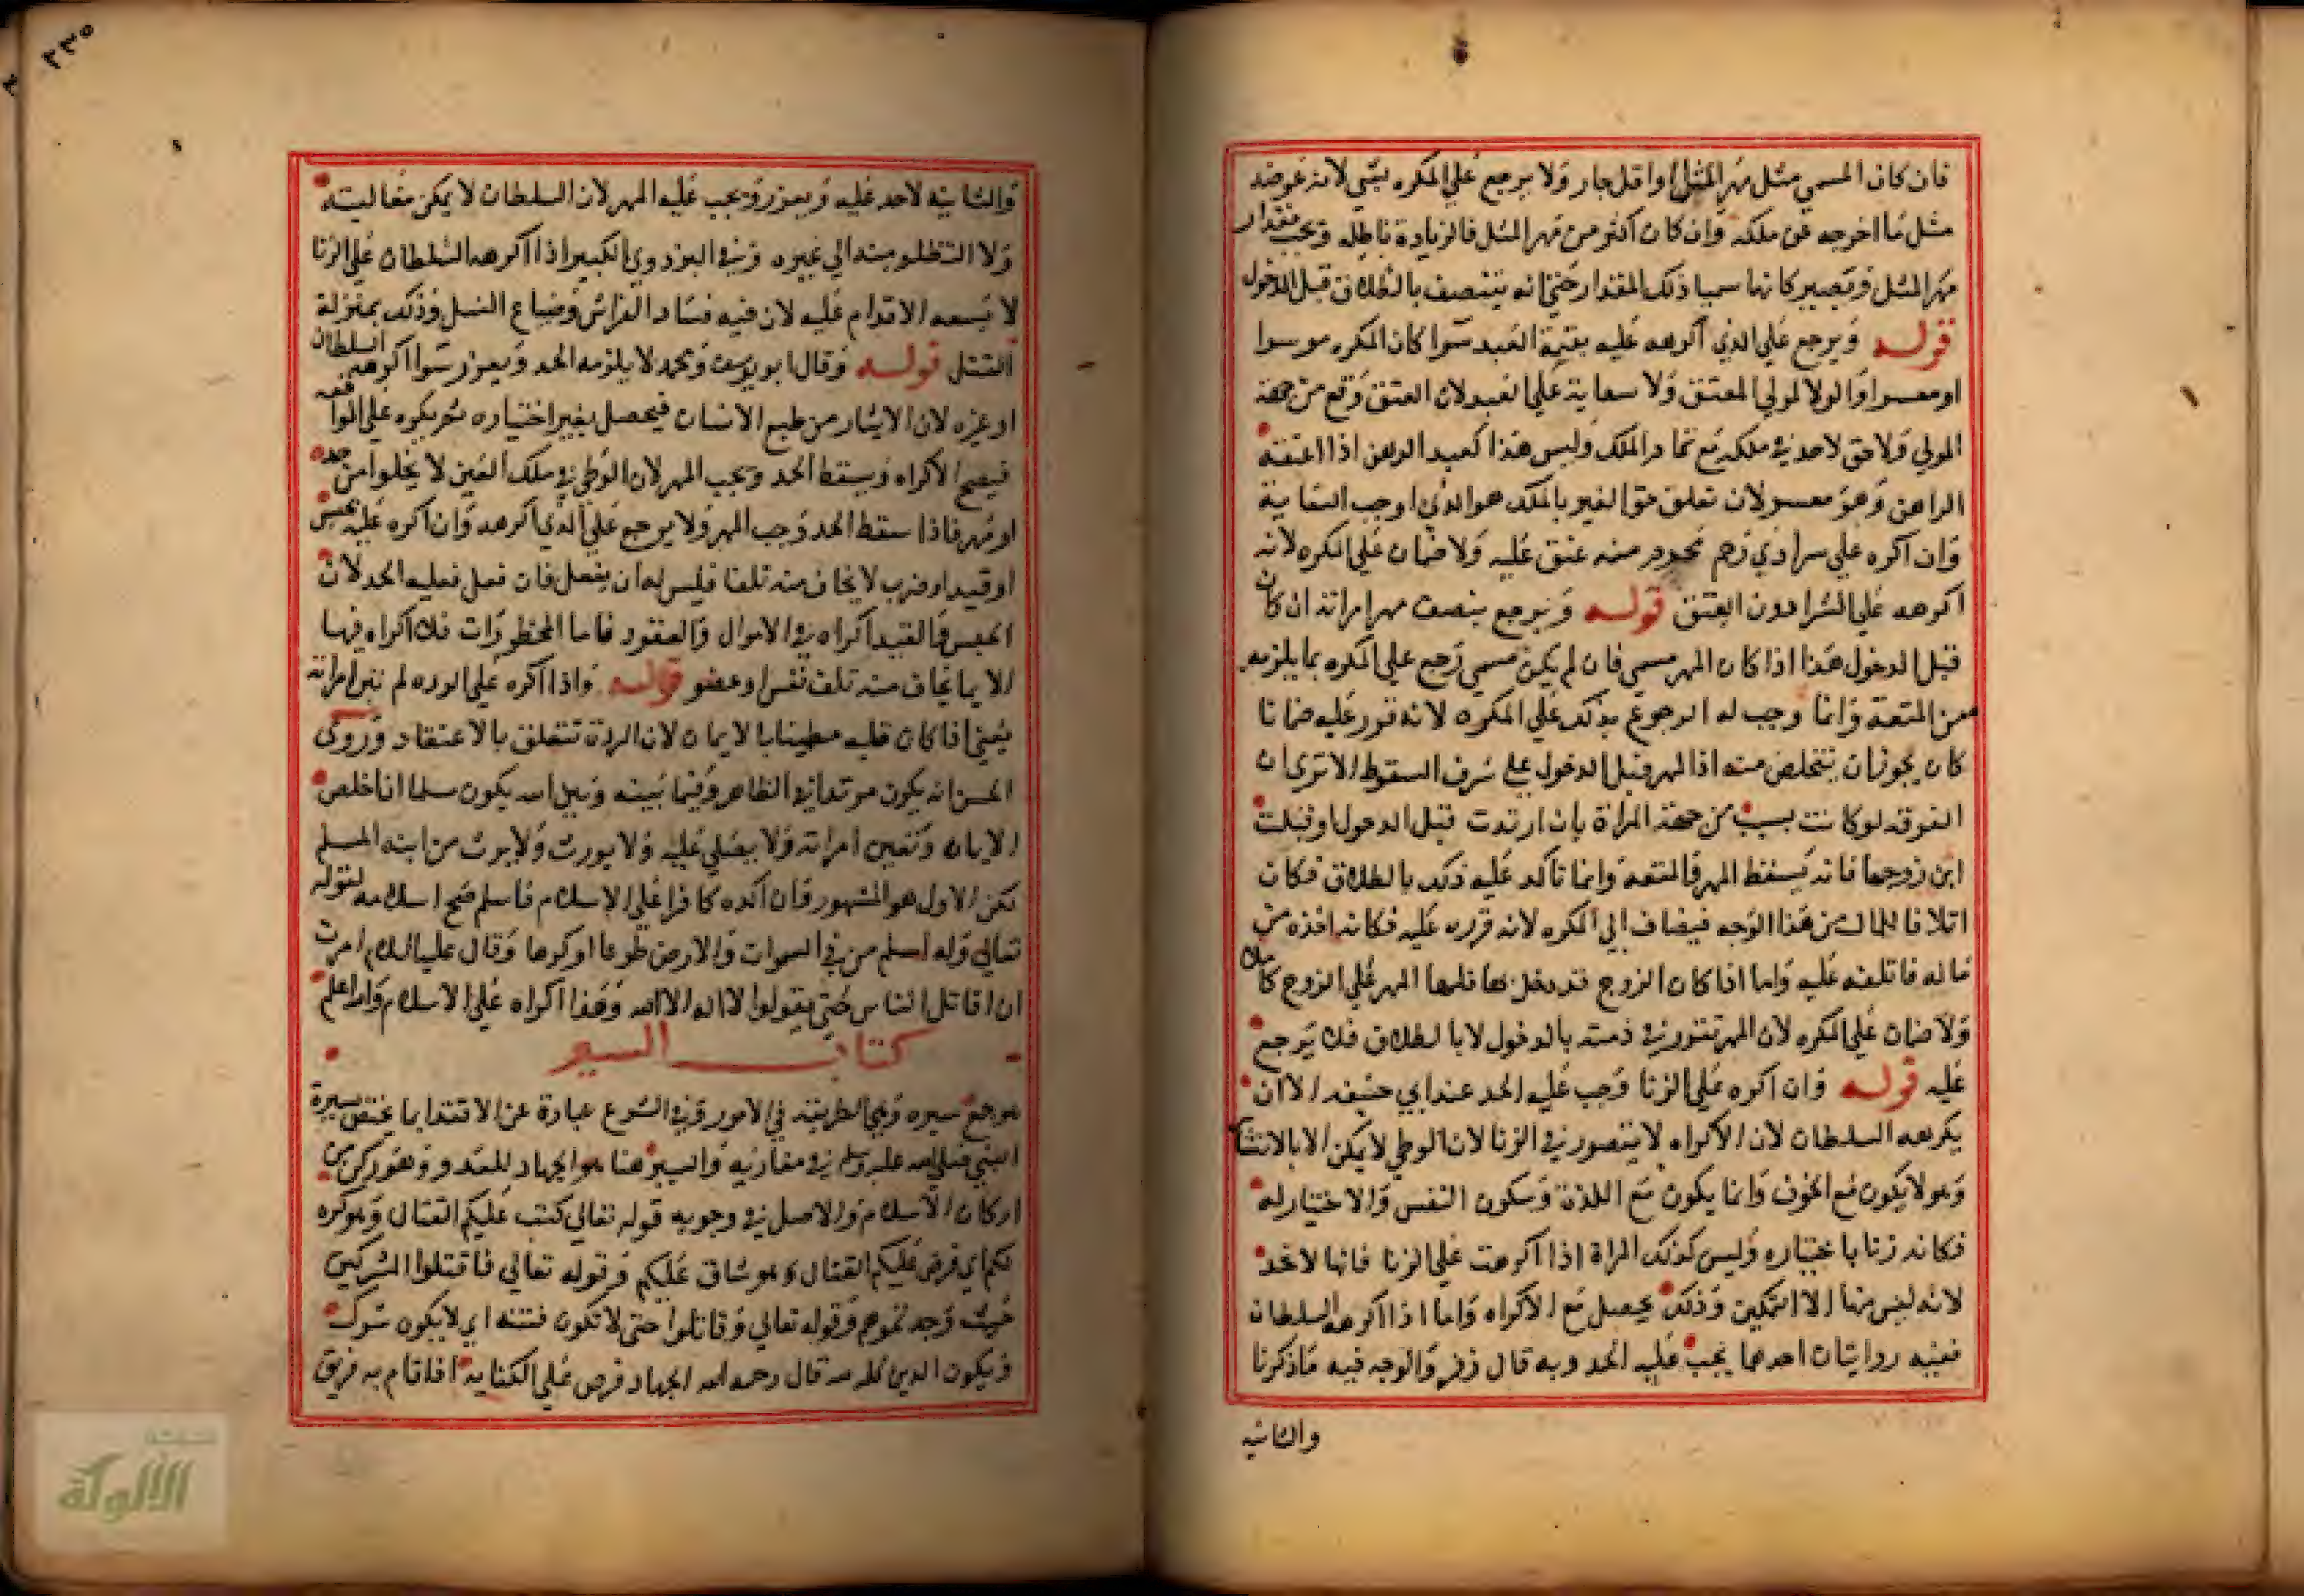 فان كان المسمي مثل مهر المثل او اقل جاز ولا يرجع علي المكره بشي لانه عوضه
مثل ما اخرجه عن ملكه وان كان اكثر من مهر المثل فالزيادة باطله ويجب مقدار
مهر المثل ويصير كانهما سميا ذلك المقدار حتي انه يتنصف بالطلاق قبل الدخول
قوله ويرجع علي الذي اكرهه عليه بقيمة العبد سوا كان المكره موسرا
او معسرا والولا لمولي المعتق ولا سعاية علي العبد لان العتق وقع من جهة
المولي ولا حق لاحد في ملكه مع تمام الملك وليس هذا كعبد الرهن اذا اعتقه
الراهن وهو معسر لان تعلق حق الغير بالملك هو الذي اوجب السعاية
وان اكره علي شرا ذي رحم محرم منه عتق عليه ولا ضمان علي المكره لانه
اكرهه علي الشرا دون العتق قوله ويرجع بنصف مهر امراته ان كان
قبل الدخول هذا اذا كان المهر مسمي فان لم يكن مسمي رجع علي المكره بما يلزمه
من المتعة وانما وجب له الرجوع بذلك علي المكره لانه قرر عليه ضمانا
كان يجوز ان يتخلص منه اذ المهر قبل الدخول علي شرف السقوط الا تري ان
الفرقه لو كانت بسبب من جهة المراة بان ارتدت قبل الدخول او قبلت
ابن زوجها فانه يسقط المهر والمتعة وانما تاكد عليه ذلك بالطلاق فكان
اتلافا للمال من هذا الوجه فيضاف الي المكره لانه قرره عليه فكانه اخذه من
ماله فاتلفه عليه واما اذا كان الزوج قد دخل بها فلها المهر علي الزوج كاملا
ولا ضمان علي المكره لان المهر تقرر في ذمته بالدخول لا بالطلاق فلا يرجع
عليه قوله وان اكره علي الزنا وجب عليه الحد عند ابي حنيفه الا ان
يكرهه السلطان لان الاكراه لا يتصور في الزنا لان الوطي لا يمكن الا بالانتشار
وهو لا يكون مع الخوف وانما يكون مع اللذة وسكون النفس والاختيار له
فكانه زنا باختياره وليس كذلك المراة اذا اكرهت علي الزنا فانها لا تحد
لانه ليس منها الا التمكين وذلك يحصل مع الاكراه واما اذا اكرهه السلطان
ففيه روايتان احدهما يجب عليه الحد وبه قال زفر والوجه فيه ماذكرنا
والثانيه
٢٣٥
والثانيه لا حد عليه ويعزر ويجب عليه المهر لان السلطان لا يمكن مغالبته
ولا التظلم منه الي غيره وفي البزدوي الكبير اذا اكرهه السلطان علي الزنا
لا يسعه الاقدام عليه لان فيه فساد الفراش وضياع النسل وذلك بمنزلة
القتل قوله وقال ابو يوسف ومحمد لا يلزمه الحد ويعزر سوا اكرهه السلطان
او غيره لان الانتشار من طبع الانسان فيحصل بغير اختياره ثم يكره علي المواقعه
فيصح الاكراه ويسقط الحد ويجب المهر لان الوطي في ملك الغير لا يخلوا من حد
او مهر فاذا سقط الحد وجب المهر ولا يرجع علي الذي اكرهه وان اكره عليه بحبس
او قيد او ضرب لا يخاف منه تلفا فليس له ان يفعل فان فعل فعليه الحد لان
الحبس والقيد اكراه في الاموال والعقود فاما المحظورات فلا اكراه فيها
الا بما يخاف منه تلف نفس او عضو قوله واذا اكره علي الرده لم تبن امراته
يعني اذا كان قلبه مطمينا بالايمان لان الردة تتعلق بالاعتقاد وروي
الحسن انه يكون مرتدا في الظاهر وفيما بينه وبين الله يكون مسلما ان اخلص
الايمان وتبين امراته ولا يصلي عليه ولا يورث ولا يرث من ابنه المسلم
لكن الاول هو المشهور فان اكره كافرا علي الاسلام فاسلم صح اسلامه لقوله
تعالي وله اسلم من في السموات والارض طوعا او كرها وقال عليه السلام امرت
ان اقاتل الناس حتي يقولوا لا اله الا الله وهذا اكراه علي الاسلام والله اعلم
كتاب السير
هو جمع سيره وهي الطريقة في الامور وفي الشرع عبارة عن الاقتدا بما يختص بسيرة
النبي صلي الله عليه وسلم في مغازيه والسير هنا هو الجهاد للعدو وهو ركن من
اركان الاسلام والاصل في وجوبه قوله تعالي كتب عليكم القتال وهو كره
لكم اي فرض عليكم القتال وهو شاق عليكم وقوله تعالي فاقتلوا المشركين
حيث وجدتموهم وقوله تعالي وقاتلوا حتي لا تكون فتنه اي لا يكون شرك
ويكون الدين كله لله قال رحمه الله الجهاد فرض علي الكفاية اذا قام به فريق
الألوكة